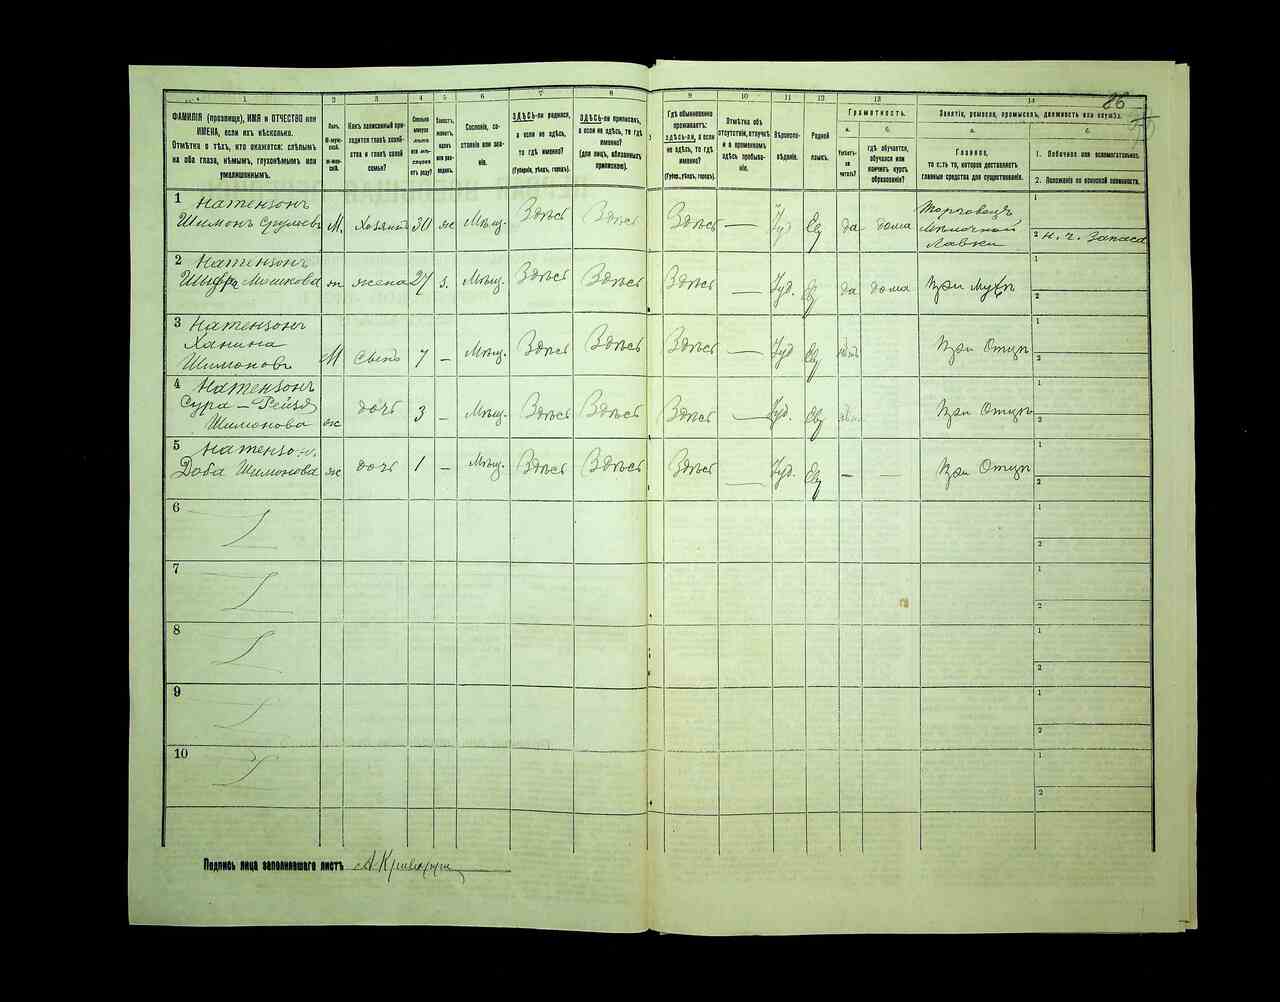 26
1 2 3 4 5 6 7 8 9 10 11 12 13 14
ФАМИЛІЯ (прозвище), ИМЯ и ОТЧЕСТВО или
ИМЕНА, если ихъ нѣсколько.
Отмѣтка о тѣхъ, кто окажется: слѣпымъ
на оба глаза, нѣмымъ, глухонѣмымъ или
умалишоннымъ.
Полъ.
М-муж-
ской.
Ж-жен-
скій.
Какъ записанный при-
ходится главѣ хозяй-
ства и главѣ своей
семьи?
Сколько
отъ роду?
Сословіе, со-
стояніе или зва-
ніе.
ЗДѢСЬ-ли родился,
а если не здѣсь,
то гдѣ именно?
(Губернія, уѣздъ, городъ).
ЗДѢСЬ-ли приписанъ,
а если не здѣсь, то гдѣ
именно?
(для лицъ, обязанныхъ
припискою).
Гдѣ обыкновенно
проживаетъ:
здѣсь-ли, а если
не здѣсь, то гдѣ
именно?
(Губер., уѣздъ, городъ).
Отмѣтка объ
отсутствіи, отлучкѣ
и о временномъ
здѣсь пребыва-
ніи.
Вѣроиспо-
вѣданіе.
Родной
языкъ.
Грамотность.
а. б.
Умѣетъ-
ли
читать?
гдѣ обучается,
обучался или
кончилъ курсъ
образованія?
Занятіе, ремесло, промыселъ, должность или служба.
а. б.
Главное,
то есть то, которое доставляетъ
главныя средства для существованія.
1. Побочное или вспомогательное.
2. Положеніе по воинской повинности.
1 Натензонъ
Шимонъ Сруліевъ М. Хозяинъ 30 ж Мѣщ. Здѣсь Здѣсь Здѣсь — Іуд Евр да дома Торговецъ
Мѣлочной
Лавки
1
2 н. ч. Запаса
2 Натензонъ
Шифра Мошкова ж жена 27 з. Мѣщ. Здѣсь Здѣсь Здѣсь — Іуд. Евр да дома При Мужѣ
1
2
3 Натензонъ
Ханина
Шимоновъ М сынъ 7 — Мѣщ. Здѣсь Здѣсь Здѣсь — Іуд Евр нѣтъ При Отцѣ
1
2
4 Натензонъ
Сура — Рейзя
Шимонова ж дочь 3 Мѣщ. Здѣсь Здѣсь Здѣсь — Іуд. Евр При Отцѣ
1
2
5 Натензон.
Доба Шимонова ж дочь 1 — Мѣщ. Здѣсь Здѣсь Здѣсь — Іуд. Евр — — При Отцѣ
1
2
6
1
2
7
1
2
8
1
2
9
1
2
10
1
2
Подпись лица заполнившаго листъ